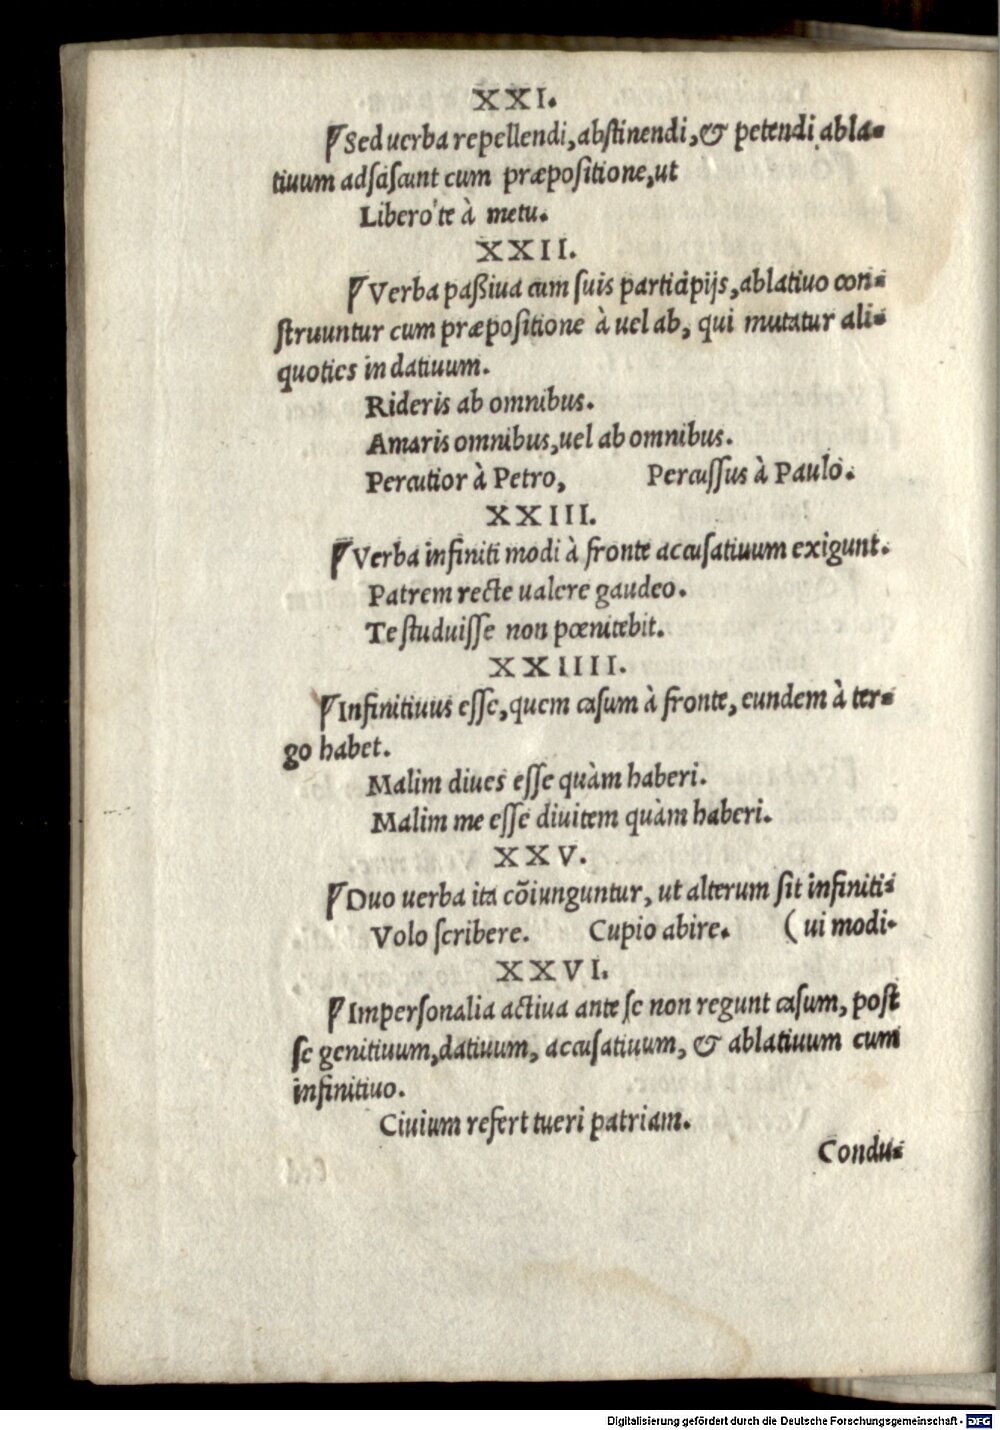 XXI.
Sed uerba repellendi, abstinendi, & petendi abla-
tiuum adsciscunt cum præpositione, ut
Libero te à metu.
XXII.
Verba paßiua cum suis participijs, ablatiuo con-
struuntur cum præpositione à uel ab, qui mutatur ali-
quoties in datiuum.
Rideris ab omnibus.
Amaris omnibus, uel ab omnibus.
Percutior à Petro, Percussus à Paulo.
XXIII.
Verba infiniti modi à fronte accusatiuum exigunt.
Patrem recte ualere gaudeo.
Te studuisse non pœnitebit.
XXIIII.
Infinitiuus esse, quem casum à fronte, eundem à ter-
go habet.
Malim diues esse quàm haberi.
Malim me esse diuitem quàm haberi.
XXV.
Duo uerba ita cõiunguntur, ut alterum sit infiniti-
Volo scribere. Cupio abire. (ui modi.
XXVI.
Impersonalia actiua ante se non regunt casum, post
se genitiuum, datiuum, accusatiuum, & ablatiuum cum
infinitiuo.
Ciuium refert tueri patriam.
Condu-
Digitalisierung gefördert durch die Deutsche Forschungsgemeinschaft - DFG